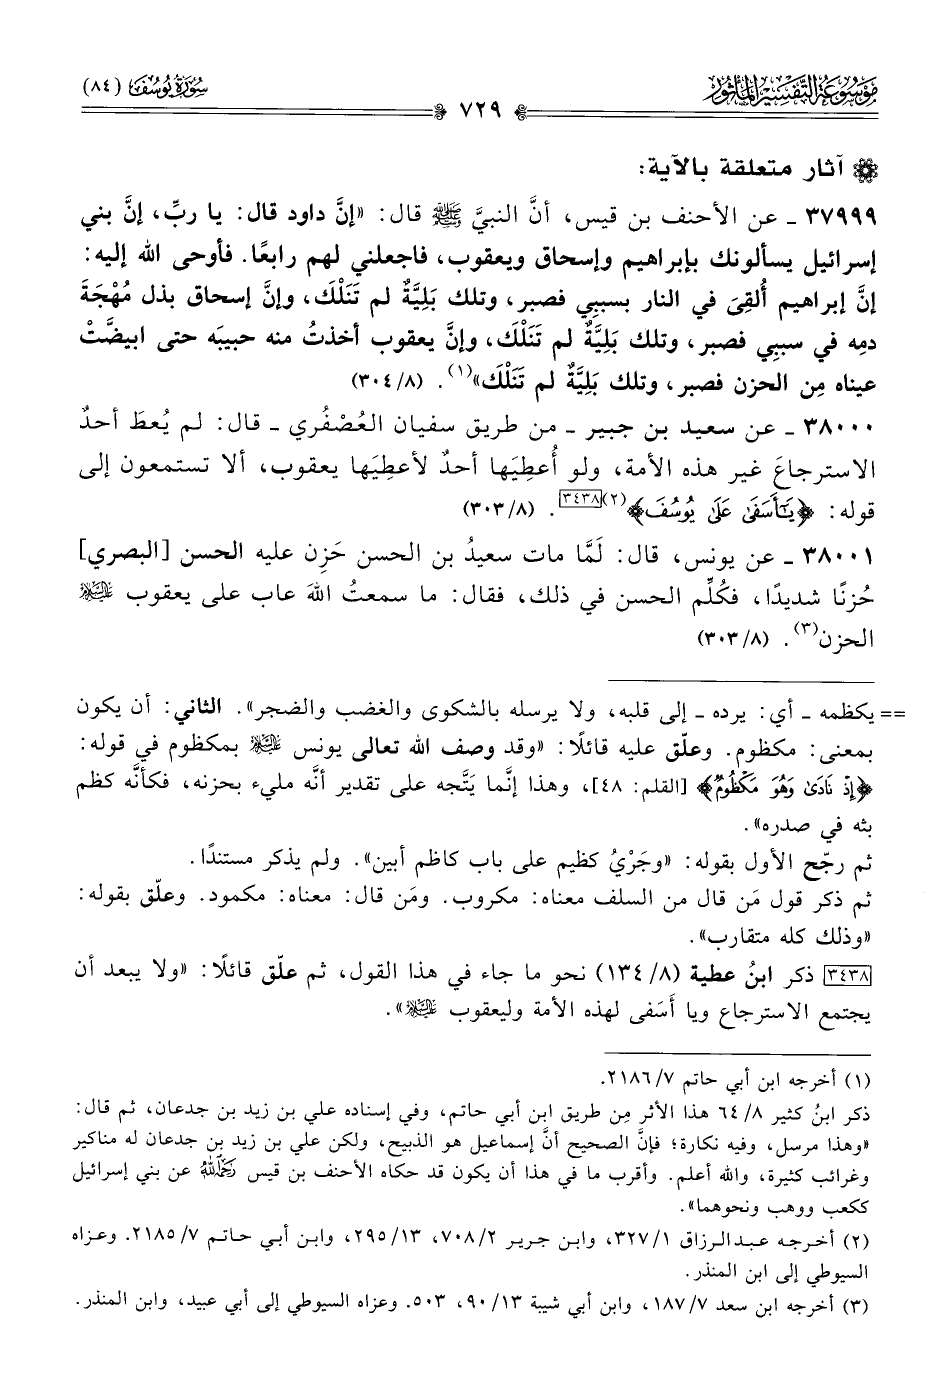 موسوعة التفسير المأثور
سورة يوسف (٨٤)
٧٢٩
آثار متعلقة بالآية:
٣٧٩٩٩ ـ عن الأحنف بن قيس، أنَّ النبيَّ ﷺ قال: «إنَّ داود قال: يا ربِّ، إنَّ بني
إسرائيل يسألونك بإبراهيم وإسحاق ويعقوب، فاجعلني لهم رابعًا. فأوحى الله إليه:
إنَّ إبراهيم أُلقِيَ في النار بسببي فصبر، وتلك بَلِيَّةٌ لم تَنَلْكَ، وإنَّ إسحاق بذل مُهْجَةَ
دمِه في سببِي فصبر، وتلك بَلِيَّةٌ لم تَنَلْكَ، وإنَّ يعقوب أخذتُ منه حبيبَه حتى ابيضَّتْ
عيناه مِن الحزن فصبر، وتلك بَلِيَّةٌ لم تَنَلْكَ»(١). (٣٠٤/٨)
٣٨٠٠٠ ـ عن سعيد بن جبير ـ من طريق سفيان العُصْفُري ـ قال: لم يُعطَ أحدٌ
الاسترجاعَ غير هذه الأمة، ولو أُعطِيَها أحدٌ لأعطِيَها يعقوب، ألا تستمعون إلى
قوله: ﴿يَٰٓأَسَفَىٰ عَلَىٰ يُوسُفَ﴾(٢)[٣٤٣٨]. (٣٠٣/٨)
٣٨٠٠١ ـ عن يونس، قال: لَمَّا مات سعيدُ بن الحسن حَزِن عليه الحسن [البصري]
حُزنًا شديدًا، فكُلِّم الحسن في ذلك، فقال: ما سمعتُ اللهَ عاب على يعقوب ﵇
الحزن(٣). (٣٠٣/٨)
== يكظمه ـ أي: يرده ـ إلى قلبه، ولا يرسله بالشكوى والغضب والضجر». الثاني: أن يكون
بمعنى: مكظوم. وعلّق عليه قائلًا: «وقد وصف الله تعالى يونس ﵇ بمكظوم في قوله:
﴿إِذْ نَادَىٰ وَهُوَ مَكْظُومٌ﴾ [القلم: ٤٨]، وهذا إنَّما يَتَّجه على تقدير أنَّه مليء بحزنه، فكأنَّه كظم
بثه في صدره».
ثم رجّح الأول بقوله: «وجَرْيُ كظيم على باب كاظم أبين». ولم يذكر مستندًا.
ثم ذكر قول مَن قال من السلف معناه: مكروب. ومَن قال: معناه: مكمود. وعلّق بقوله:
«وذلك كله متقارب».
[٣٤٣٨] ذكر ابنُ عطية (١٣٤/٨) نحو ما جاء في هذا القول، ثم علّق قائلًا: «ولا يبعد أن
يجتمع الاسترجاع ويا أَسَفى لهذه الأمة وليعقوب ﵇».
(١) أخرجه ابن أبي حاتم ٢١٨٦/٧.
ذكر ابنُ كثير ٦٤/٨ هذا الأثر مِن طريق ابن أبي حاتم، وفي إسناده علي بن زيد بن جدعان، ثم قال:
«وهذا مرسل، وفيه نكارة؛ فإنَّ الصحيح أنَّ إسماعيل هو الذبيح، ولكن علي بن زيد بن جدعان له مناكير
وغرائب كثيرة، والله أعلم. وأقرب ما في هذا أن يكون قد حكاه الأحنف بن قيس ﵀ عن بني إسرائيل
ككعب ووهب ونحوهما».
(٢) أخرجه عبدالرزاق ٣٢٧/١، وابن جرير ٧٠٨/٢، ٢٩٥/١٣، وابن أبي حاتم ٢١٨٥/٧. وعزاه
السيوطي إلى ابن المنذر.
(٣) أخرجه ابن سعد ١٨٧/٧، وابن أبي شيبة ٩٠/١٣، ٥٠٣. وعزاه السيوطي إلى أبي عبيد، وابن المنذر.